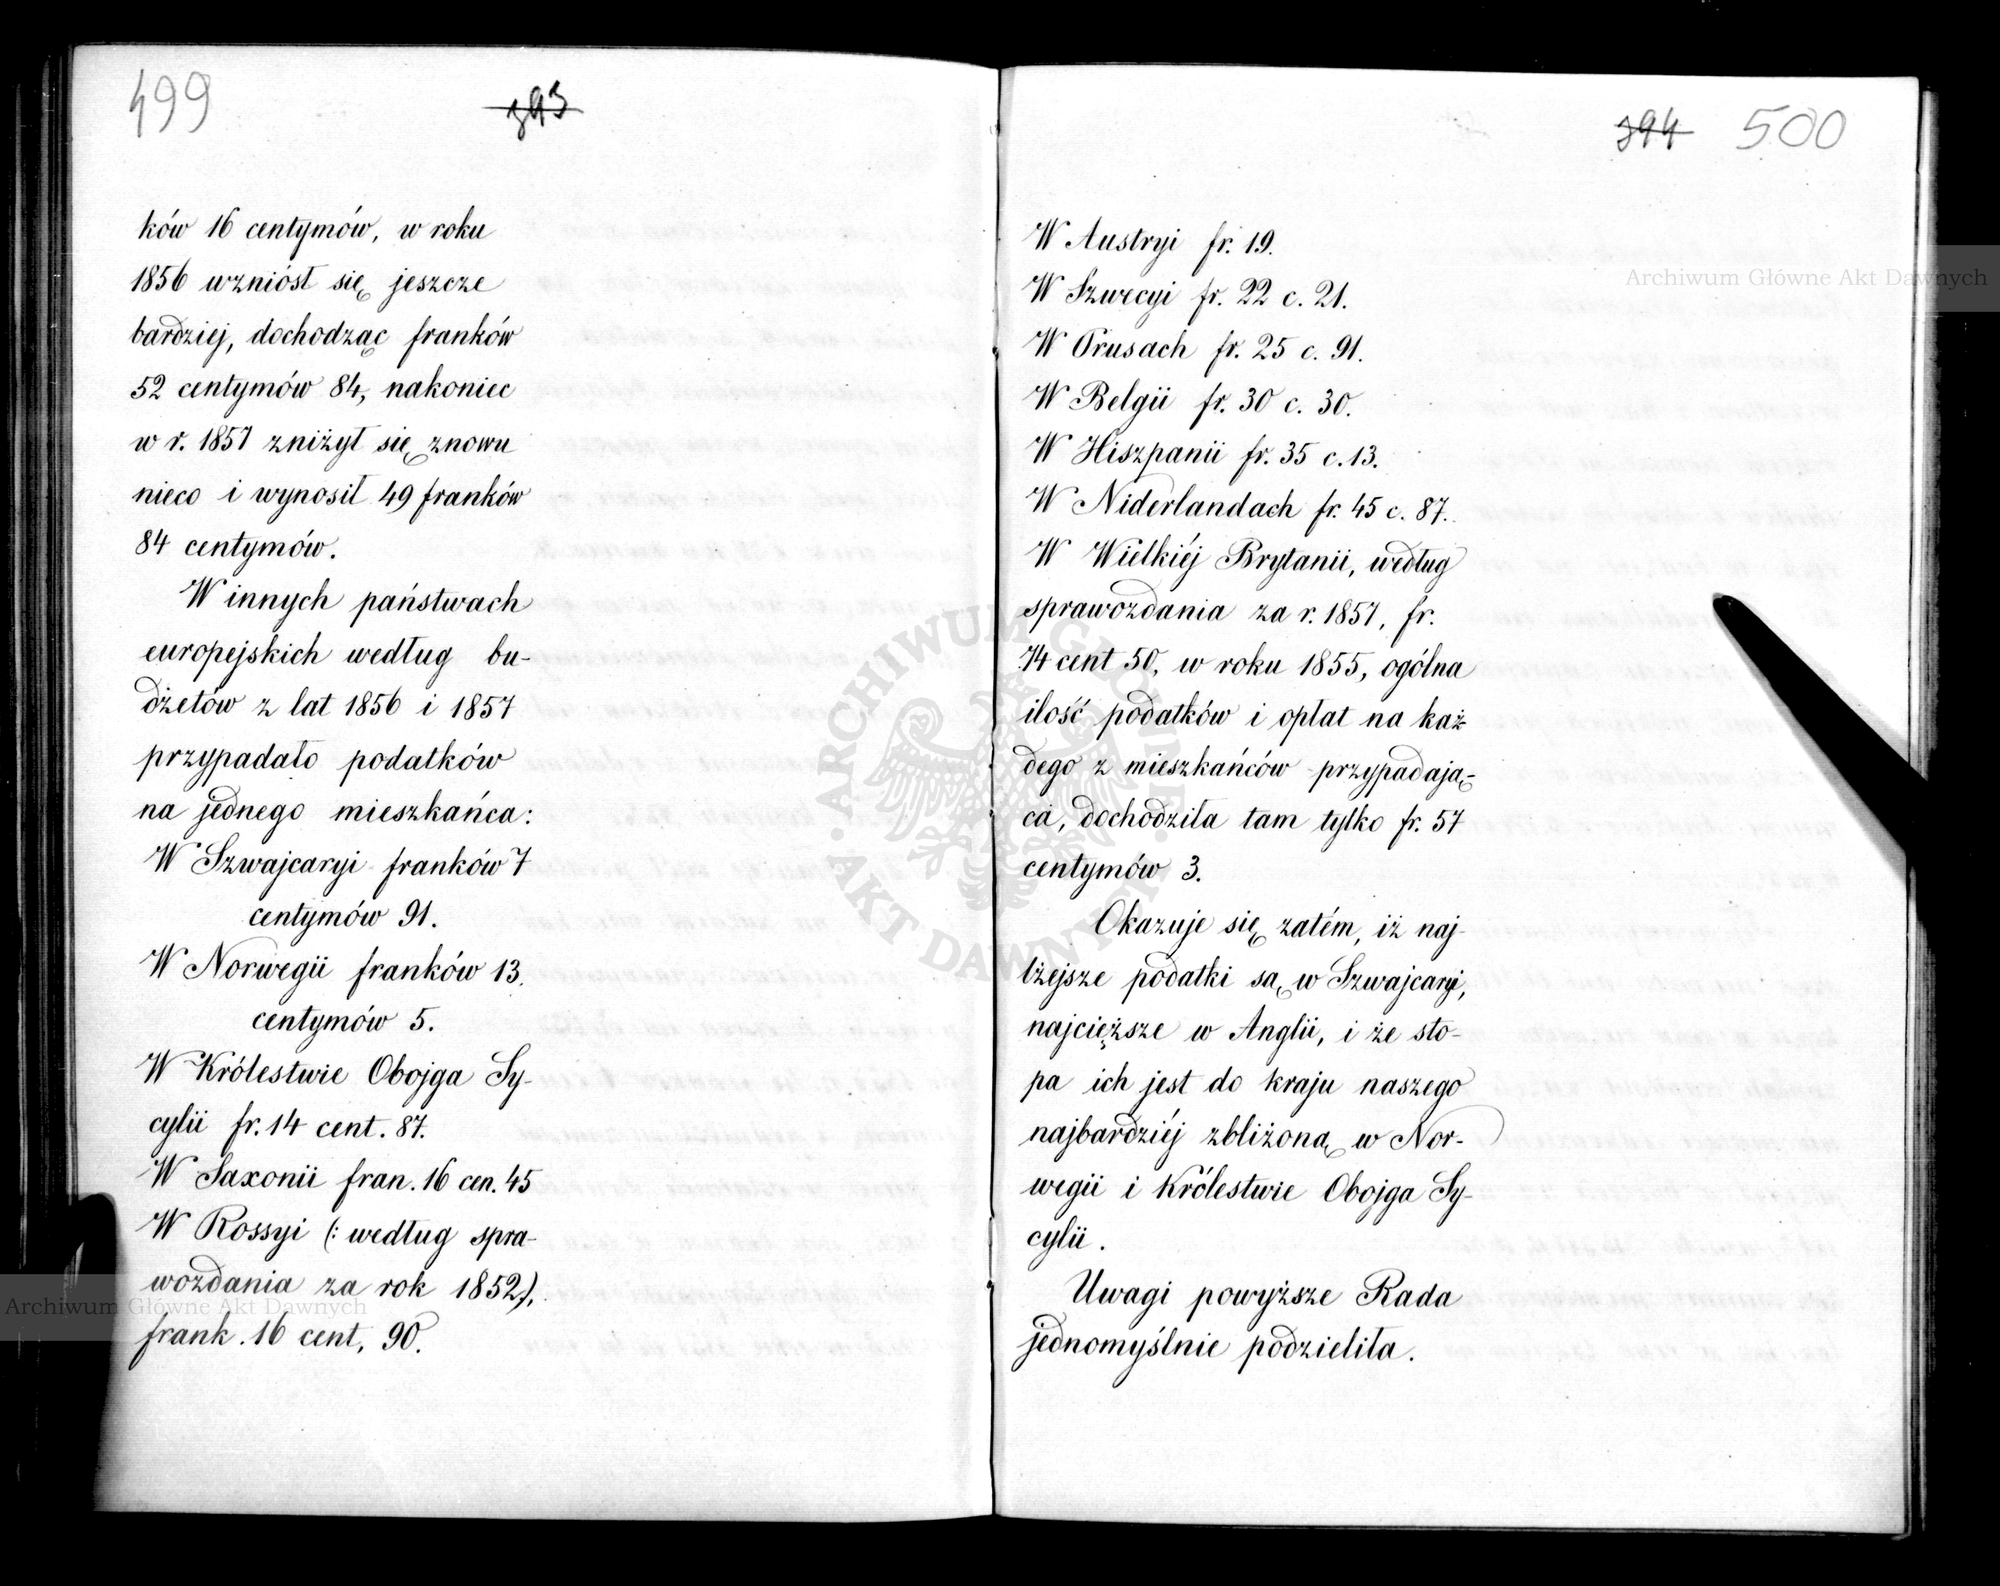 499
393
ków 16 centymów, w roku
1856 wzniósł się jeszcze
bardziej, dochodząc franków
52 centymów 84, nakoniec
w r. 1857 zniżył się znowu
nieco i wynosił 49 franków
84 centymów.
W innych państwach
europejskich według bu-
dżetów z lat 1856 i 1857
przypadało podatków
na jednego mieszkańca:
W Szwajcaryi franków 7
centymów 91.
W Norwegii franków 13.
centymów 5.
W Królestwie Obojga Sy-
cylii fr. 14 cent. 87.
W Saxonii fran. 16 cen. 45
W Rossyi (: według spra-
wozdania za rok 1852),
frank. 16 cent, 90.
394 500
W Austryi fr. 19.
W Szwecyi fr. 22 c. 21.
W Prusach fr. 25 c. 91.
W Belgii fr. 30 c. 30.
W Hiszpanii fr. 35 c. 13.
W Niderlandach fr. 45 c. 87.
W Wielkiéj Brytanii, według
sprawozdania za r. 1857, fr.
74 cent 50, w roku 1855, ogólna
ilość podatków i opłat na każ-
dego z mieszkańców przypadają-
ca, dochodziła tam tylko fr. 57
centymów 3.
Okazuje się zatém, iż naj-
lżejsze podatki są w Szwajcaryi,
najcięższe w Anglii, i że sto-
pa ich jest do kraju naszego
najbardziéj zbliżoną w Nor-
wegii i Królestwie Obojga Sy-
cylii.
Uwagi powyższe Rada
jednomyślnie podzieliła.
Archiwum Główne Akt Dawnych
Archiwum Główne Akt Dawnych
ARCHIWUM GŁÓWNE
AKT DAWNYCH